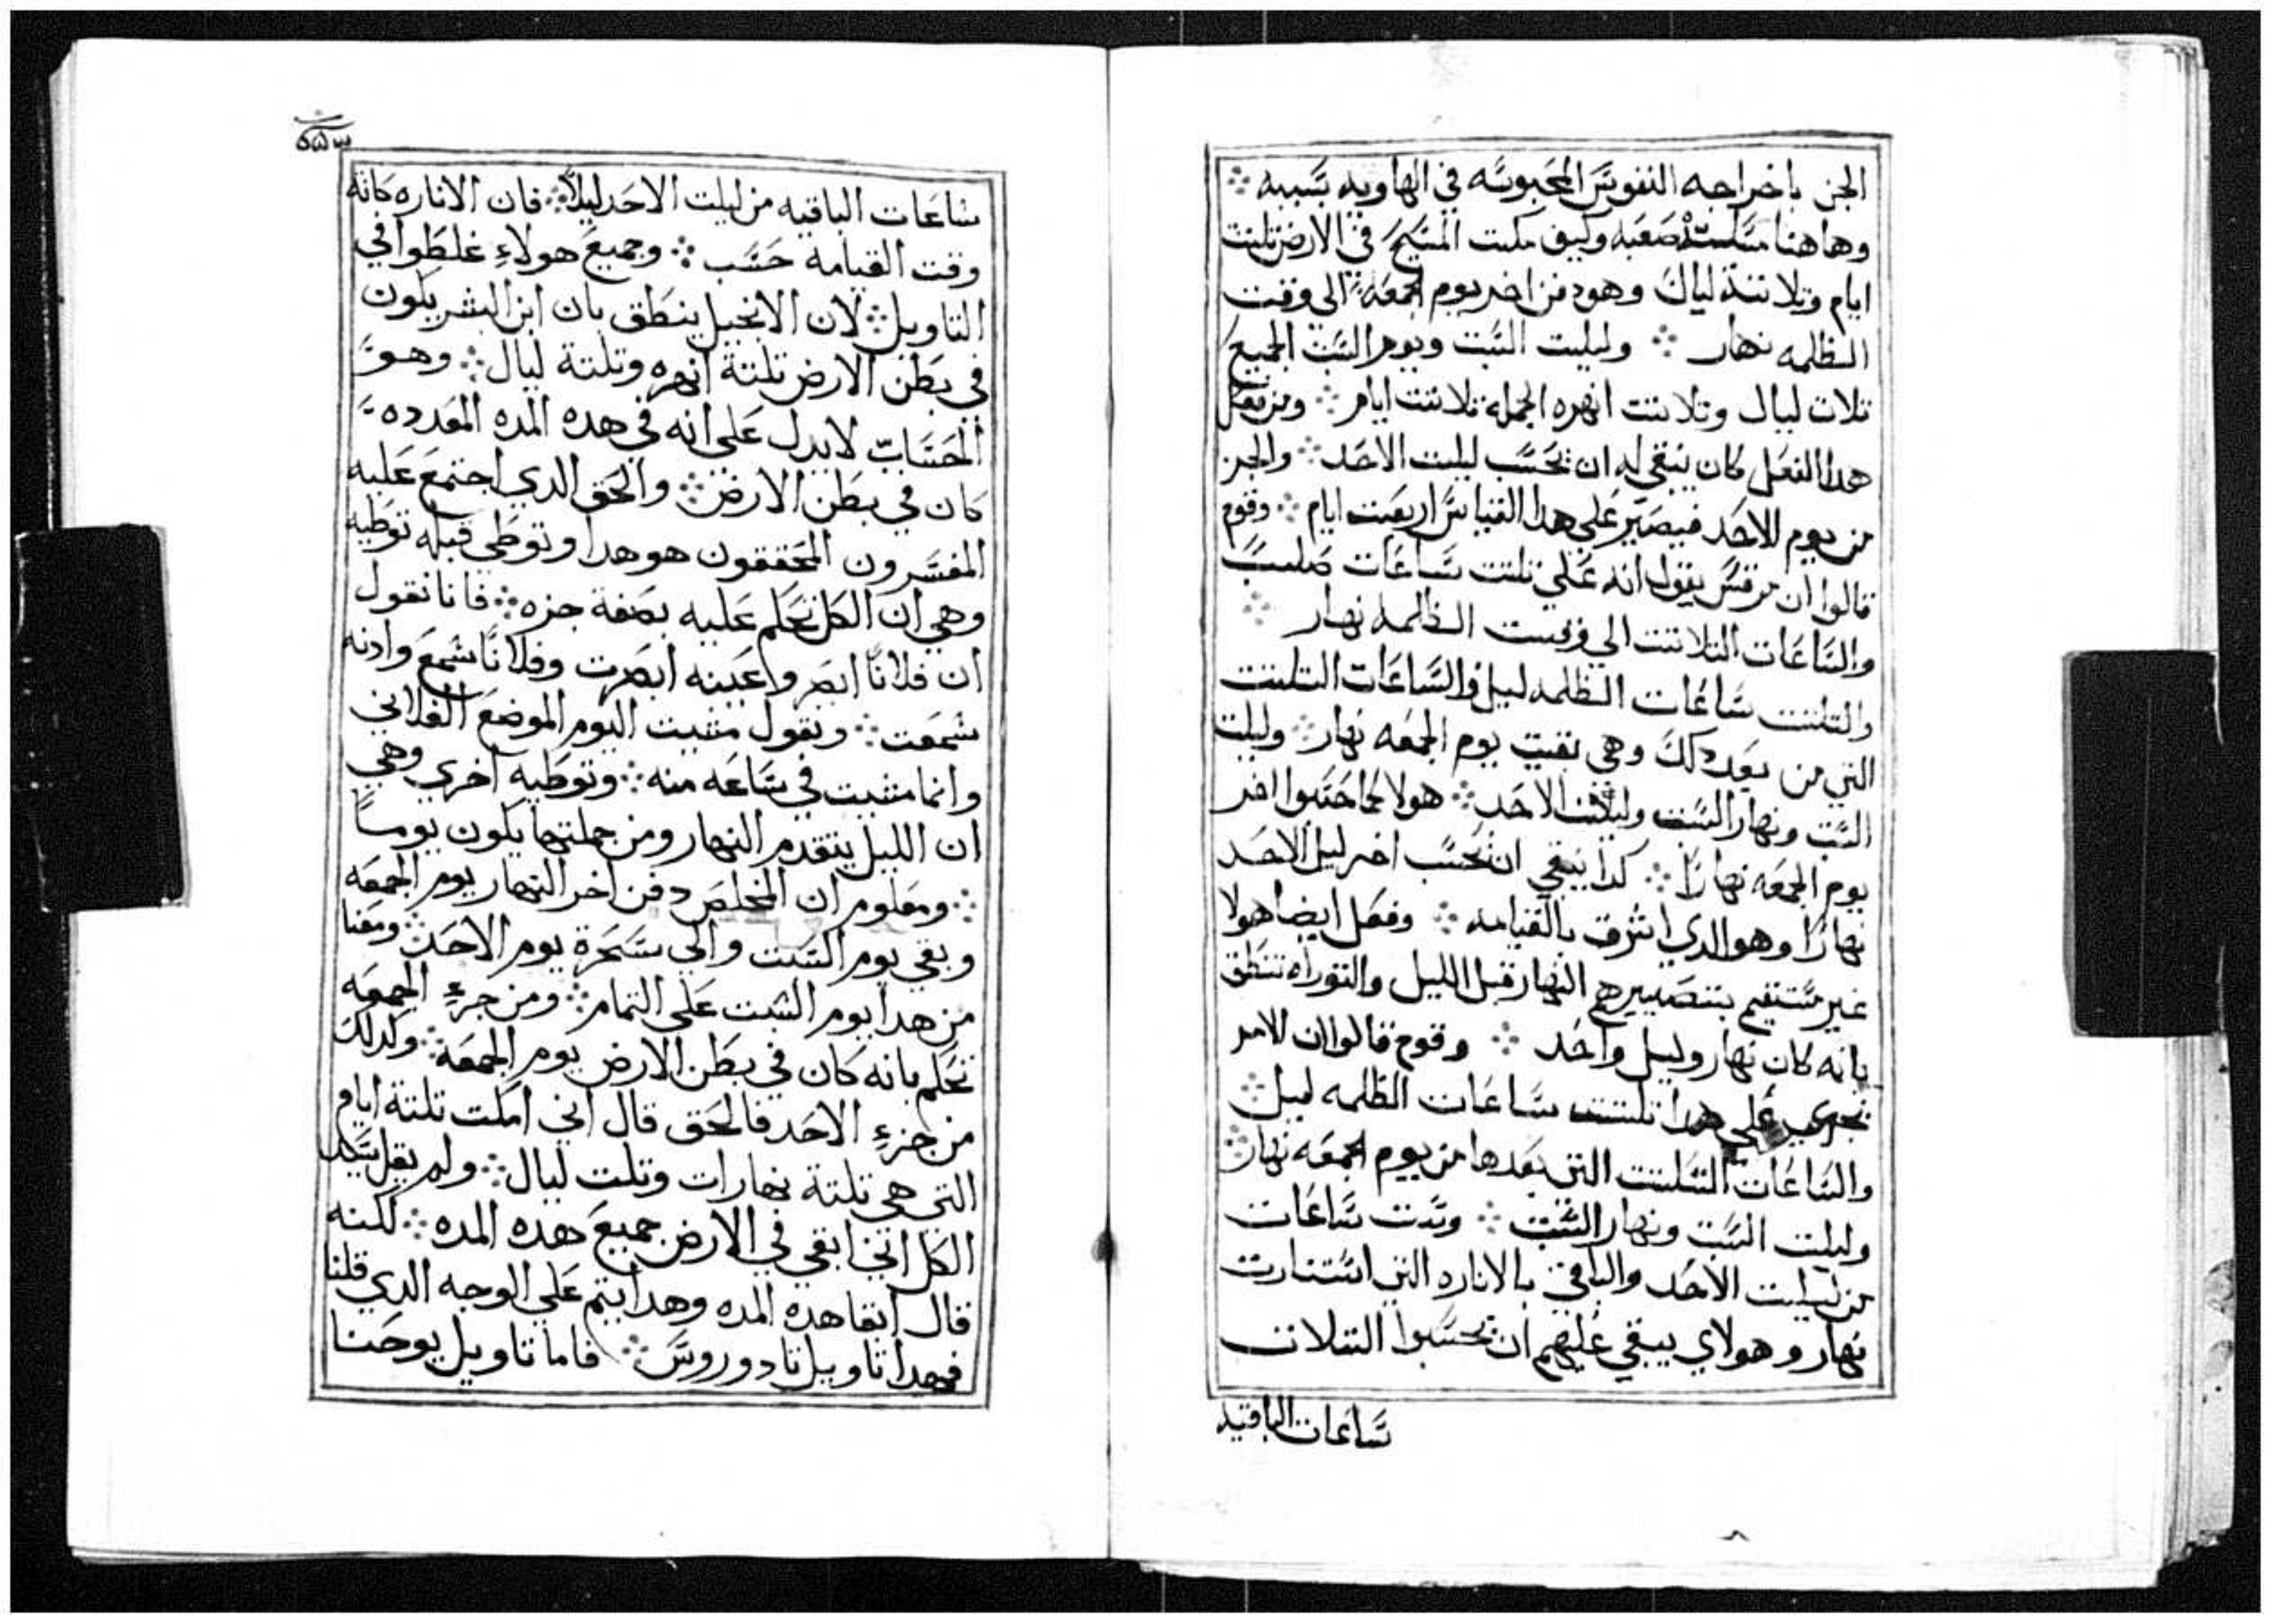 الجن باخراجه النفوس المحبوسه في الهاويه بسببه ܀
وهاهنا مسلة صعبه وكيف مكت المسيح في الارض تلتت
ايام وتلاتة ليال وهو دفن اخر يوم الجمعه ܀ الي وقت
الظلمه نهار ܀ وليلت السبت ويوم السبت الجميع
تلات ليال وتلاتت انهره الجمله تلاتت ايام ܀ ومن فعل
هدا الفعل كان ينبغي له ان يحسب ليلت الاحد ܀ والجز
من يوم الاحد فيصير علي هدا القياس اربعت ايام ܀ وقوم
قالوا ان مرقس يقول انه علي تلتت ساعات صلب
والساعات التلاتت الي وقت الظلمه نهار ܀
والتلتت ساعات الظلمه ليل والساعات التلتت
التي من بعد دلك وهي بقيت يوم الجمعه نهار ܀ وليلت
السبت ونهار السبت وليلت الاحد ܀ هولا كما حسبوا اخر
يوم الجمعه نهارا ܀ كدا ينبغي ان يحسب اخر ليل الاحد
نهارا وهو الدي اشرف بالقيامه ܀ وفعل ايضا هولا
غير مستقيم بتصييرهم النهار قبل الليل والتوراه تنطق
بانه كان نهار وليل واحد ܀ وقوم قالوا ان الامر
يجري علي هدا تلتت ساعات الظلمه ليل ܀
والساعات التلتت التي بعدها من يوم الجمعه نهار ܀
وليلت السبت ونهار السبت ܀ وست ساعات
من ليلت الاحد والباقي بالاناره التي استنارت
نهار وهولاي يبقي عليهم ان يحسبوا التلات
ساعات الباقيه
ساعات الباقيه من ليلت الاحد ليلاً ܀ فان الاناره كانه
وقت القيامه حسب ܀ وجميع هولاءِ غلطوا في
التاويل ܀ لان الانجيل ينطق بان ابن البشر يكون
في بطن الارض تلتة انهره وتلتة ليال ܀ وهو
الحساب لا يدل علي انه في هده المده المعدده
كان في بطن الارض ܀ والحق الدي اجتمع عليه
المفسرون المحققون هو هدا وتوطي قبله توطيه
وهي ان الكل يحلم عليه بصفة جزه ܀ فانا نقول
ان فلانًا ابصر واعينه ابصرت وفلانًا سمع وادنه
سمعت ܀ ونقول مشيت اليوم الموضع الفلاني
وانما مشيت في ساعه منه ܀ وتوطيه اخري وهي
ان الليل يتقدم النهار ومن جملتهما يكون يوماً
܀ ومعلوم ان المخلص دفن اخر النهار يوم الجمعه
وبقي يوم السبت والي سحرة يوم الاحد ܀ ومعنا
من هدا يوم السبت علي التمام ܀ ومن جزءِ الجمعه
نحلم بانه كان في بطن الارض يوم الجمعه ܀ وكدلك
من جزءِ الاحد فالحق قال اني امكت تلتة ايام
التي هي تلتة نهارات وتلت ليال ܀ ولم يقل بتكل
الكل انني ابقي في الارض جميع هده المده ܀ لكنه
قال ابقا هده المده وهدا يتم علي الوجه الدي قلنا
فهدا تاويل تادوروس ܀ فاما تاويل يوحنا